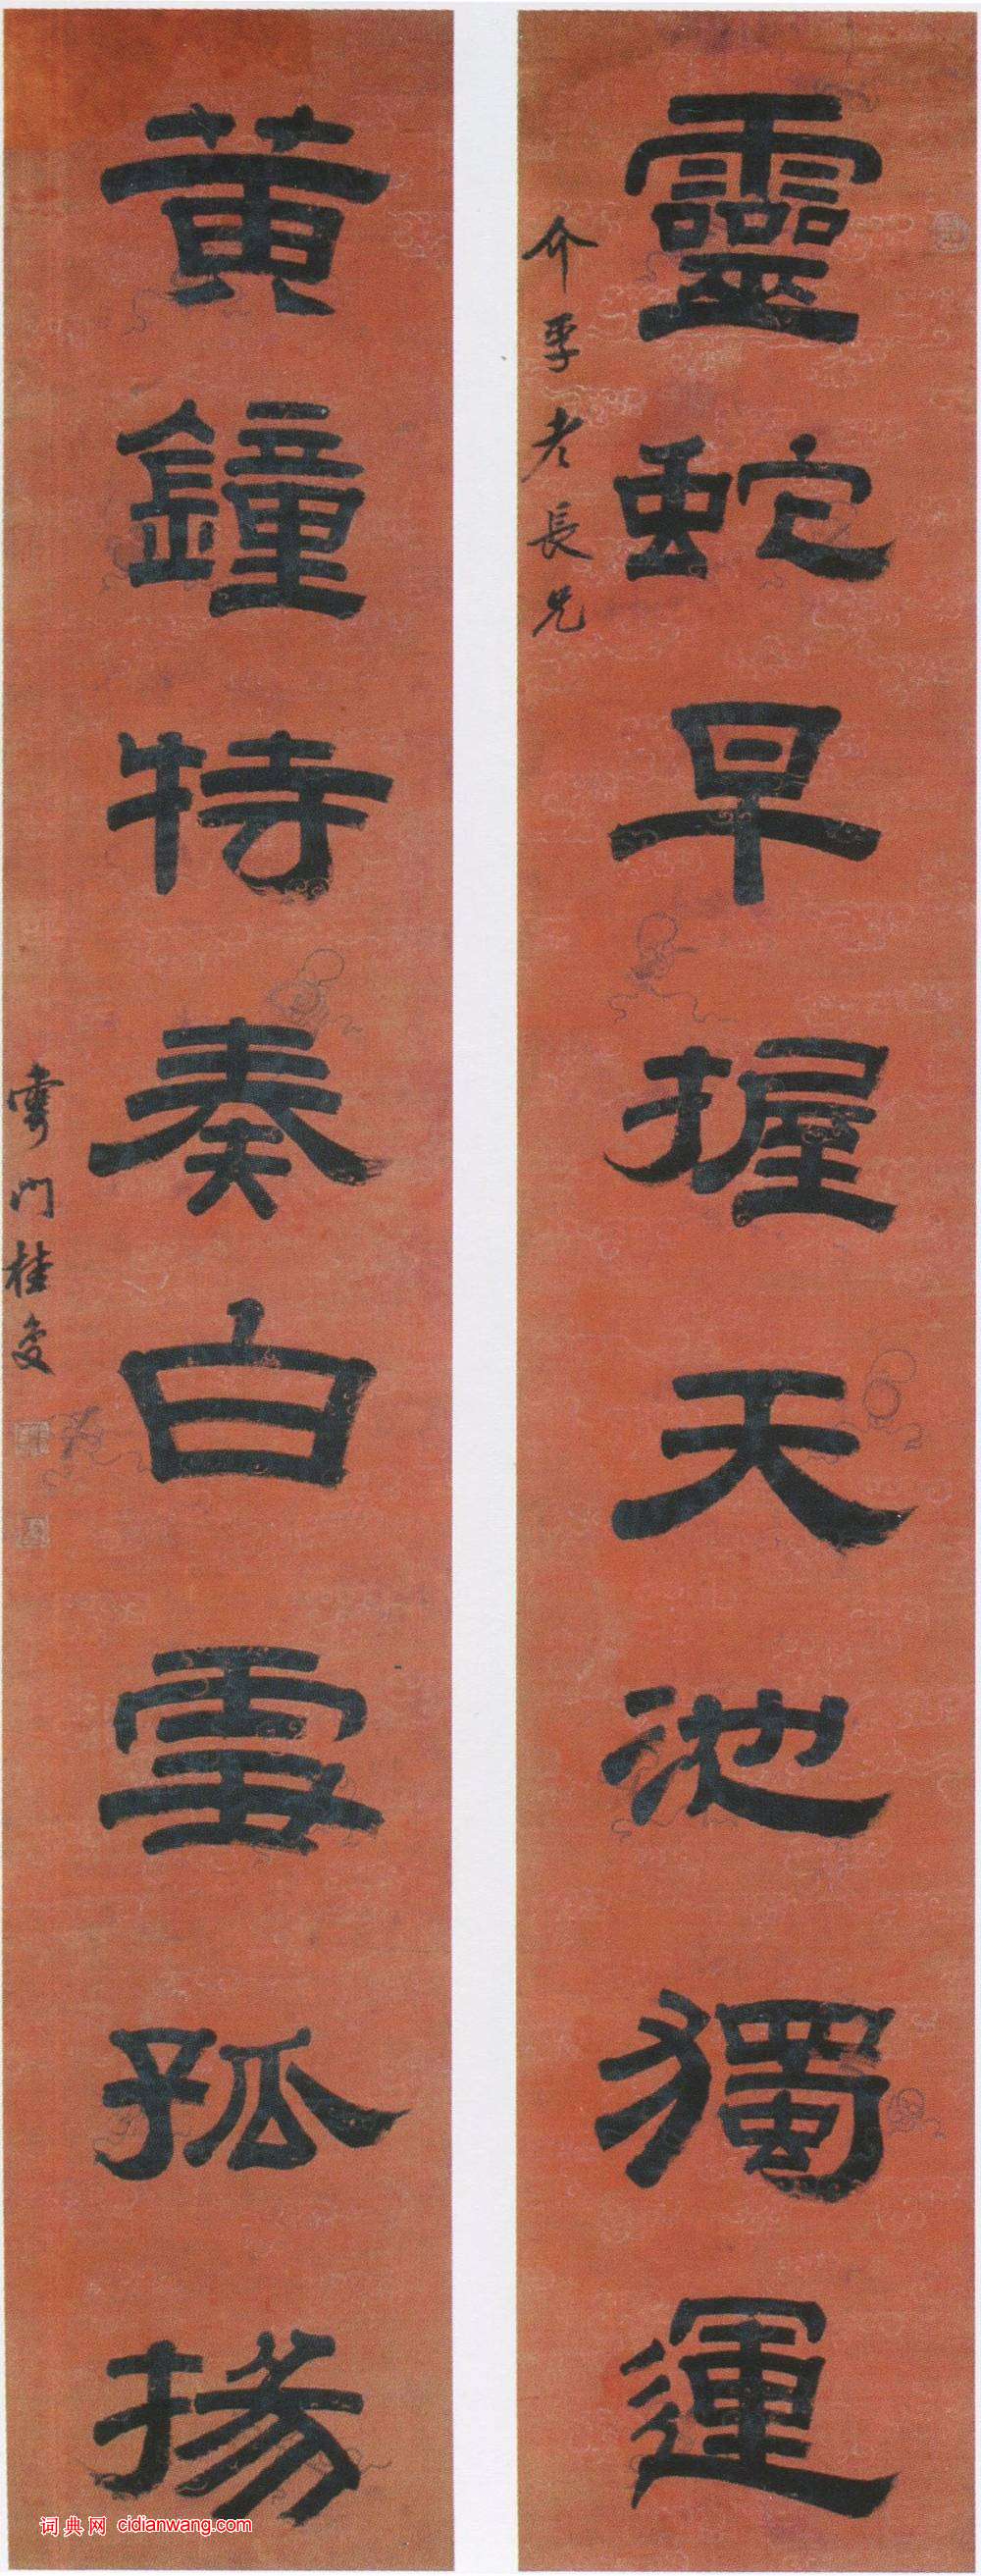 靈蛇早握天池獨運
介季老長兄
黃鐘特奏白雲孤揚
雩門桂馥
词典网 cidianwang.com